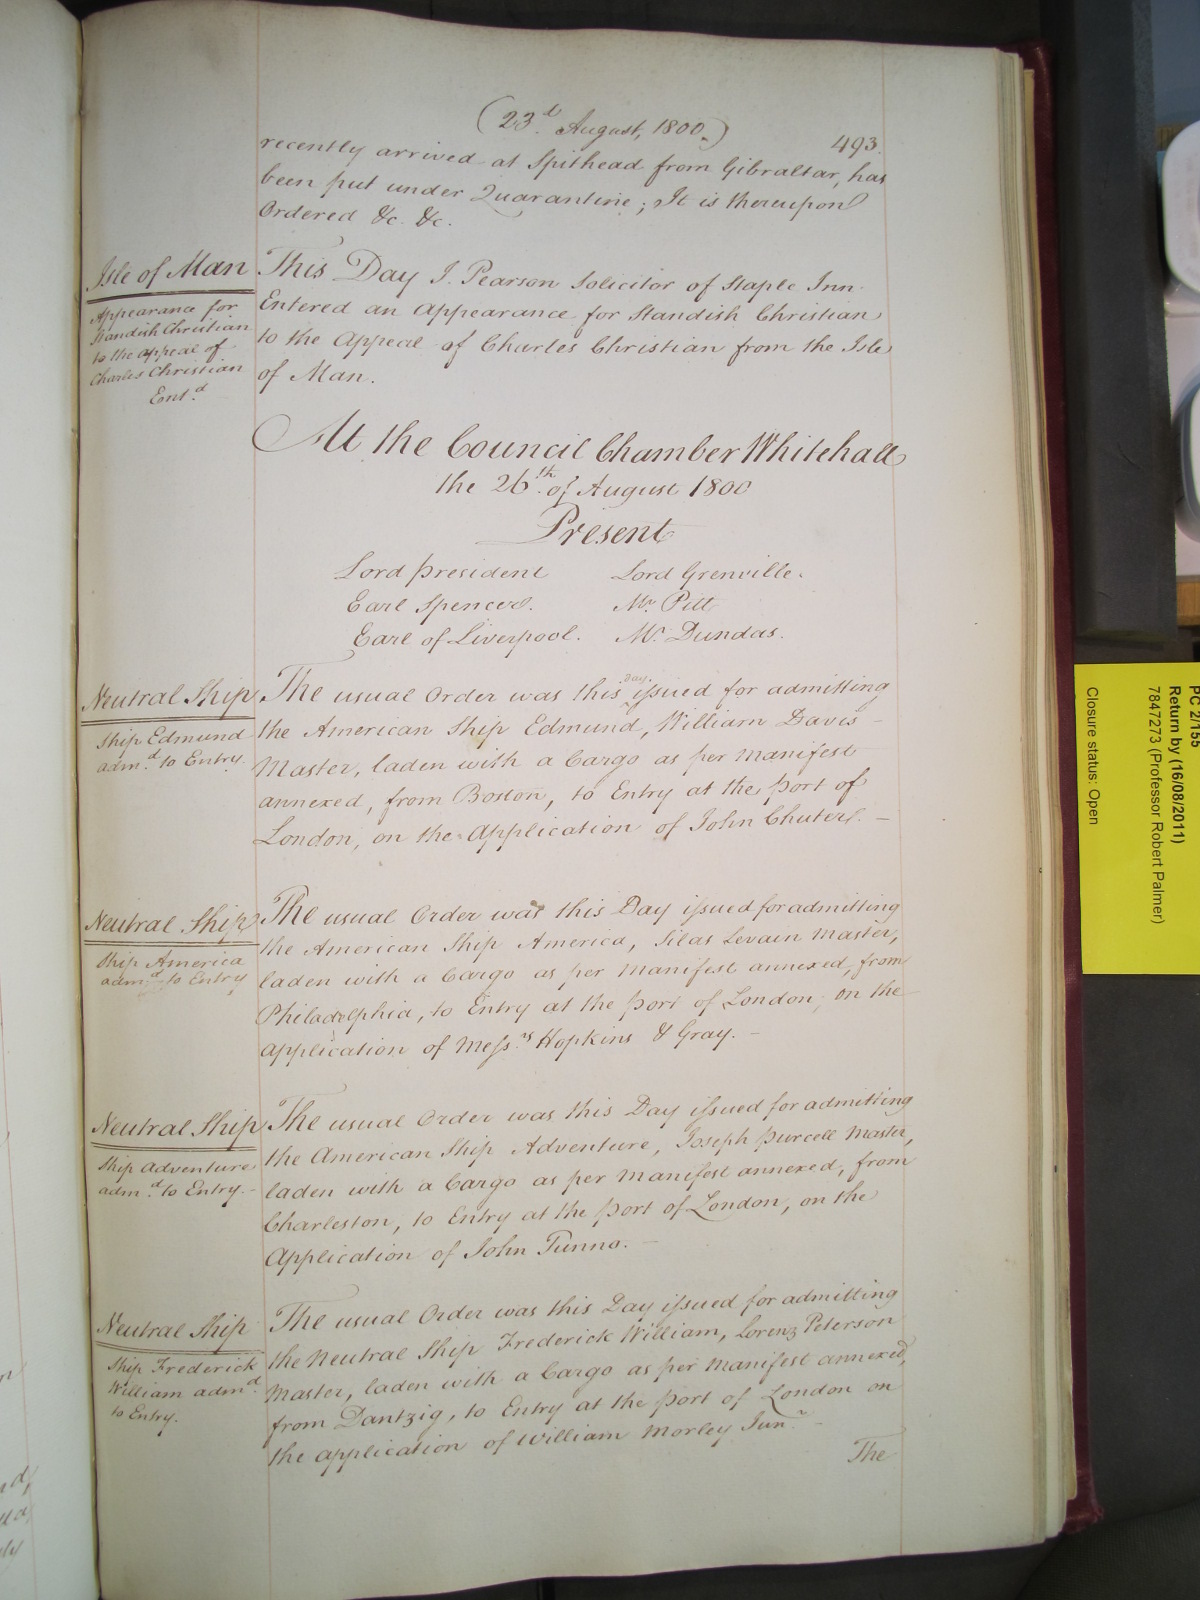 (23.d August, 1800.)
493.
recently arrived at Spithead from Gibraltar, has
been put under Quarantine; It is thereupon
Ordered &c. &c.
Isle of Man
Appearance for
Standish Christian
to the Appeal of
Charles Christian
Ent.d
This Day J. Pearson Solicitor of Staple Inn
Entered an Appearance for Standish Christian
to the Appeal of Charles Christian from the Isle
of Man.
At the Council Chamber Whitehall
the 26.th of August 1800
Present
Lord President Lord Grenville.
Earl Spencer. Mr. Pitt
Earl of Liverpool. Mr. Dundas.
Neutral Ship
Ship Edmund
adm.d to Entry.
The usual Order was this Day issued for admitting
the American Ship Edmund, William Davis
Master, laden with a Cargo as per Manifest
annexed, from Boston, to Entry at the Port of
London, on the Application of John Chuter. –
Neutral Ship
Ship America
adm.d to Entry
The usual Order was this Day issued for admitting
the American Ship America, Silas Master,
laden with a Cargo as per Manifest annexed, from
Philadelphia, to Entry at the Port of London, on the
Application of Mess.rs Hopkins & Gray. –
Neutral Ship
Ship Adventure
adm.d to Entry. –
The usual Order was this Day issued for admitting
the American Ship Adventure, Joseph Purcell Master,
laden with a Cargo as per Manifest annexed, from
Charleston, to Entry at the Port of London, on the
Application of John Tunno. –
Neutral Ship
Ship Frederick
William adm.d
to Entry.
The usual Order was this Day issued for admitting
the Neutral Ship Frederick William, Lorenz Peterson
Master, laden with a Cargo as per Manifest annexed,
from Dantzig, to Entry at the Port of London on
the application of William Morley Jun.r –
The
PC 2/155
Return by (16/08/2011)
7847273 (Professor Robert Palmer)
Closure status: Open